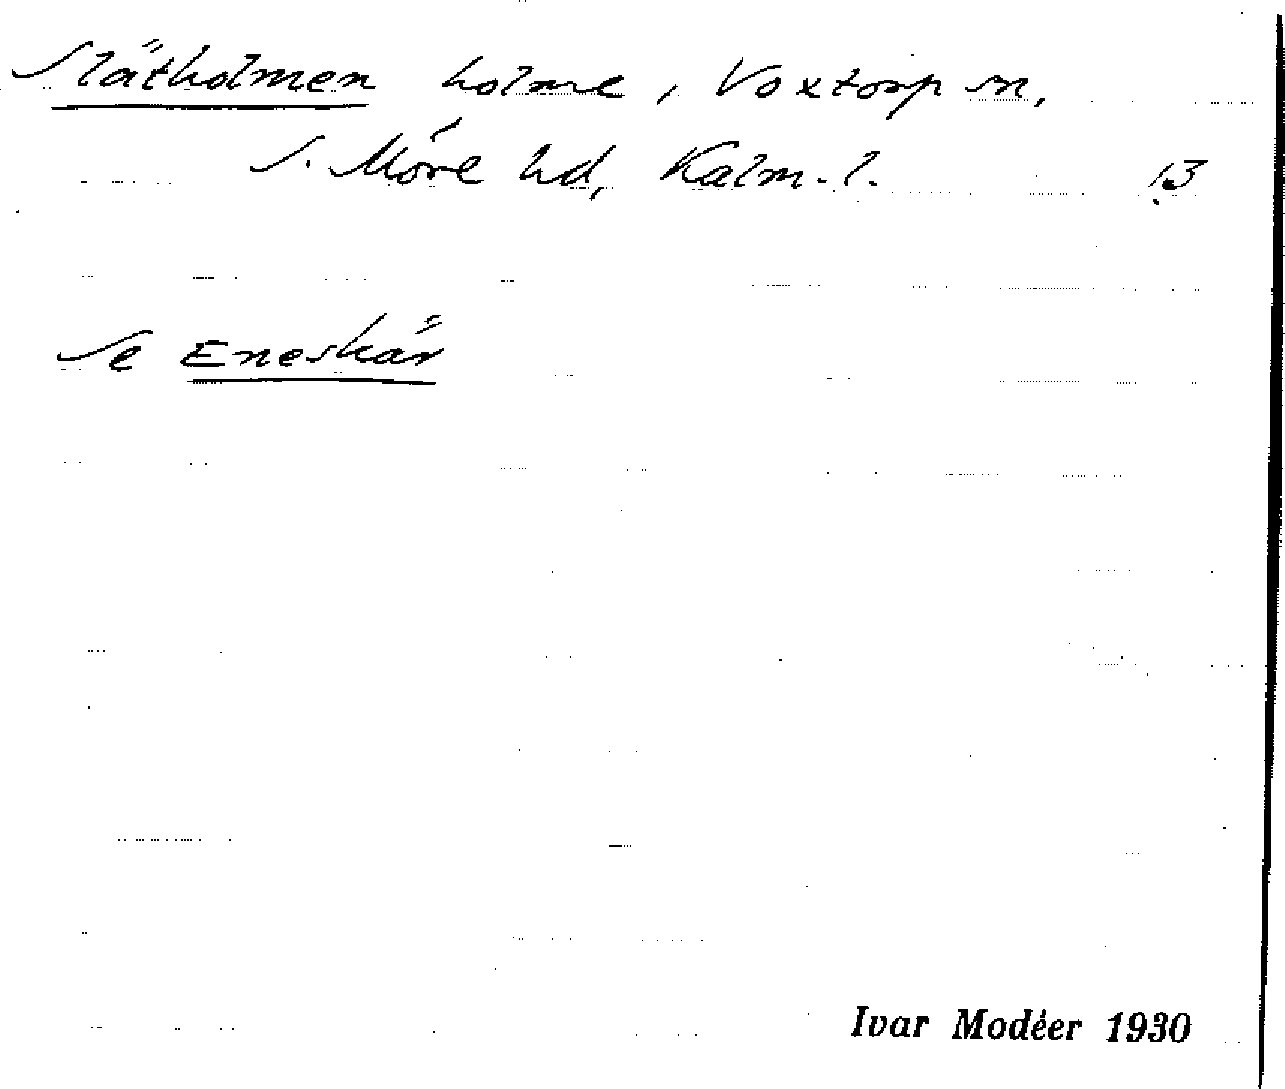 Slätholmen holme, Voxtorp sn,
S. Möre hd, Kalm. l. 13
Se Eneskär
Ivar Modéer 1930